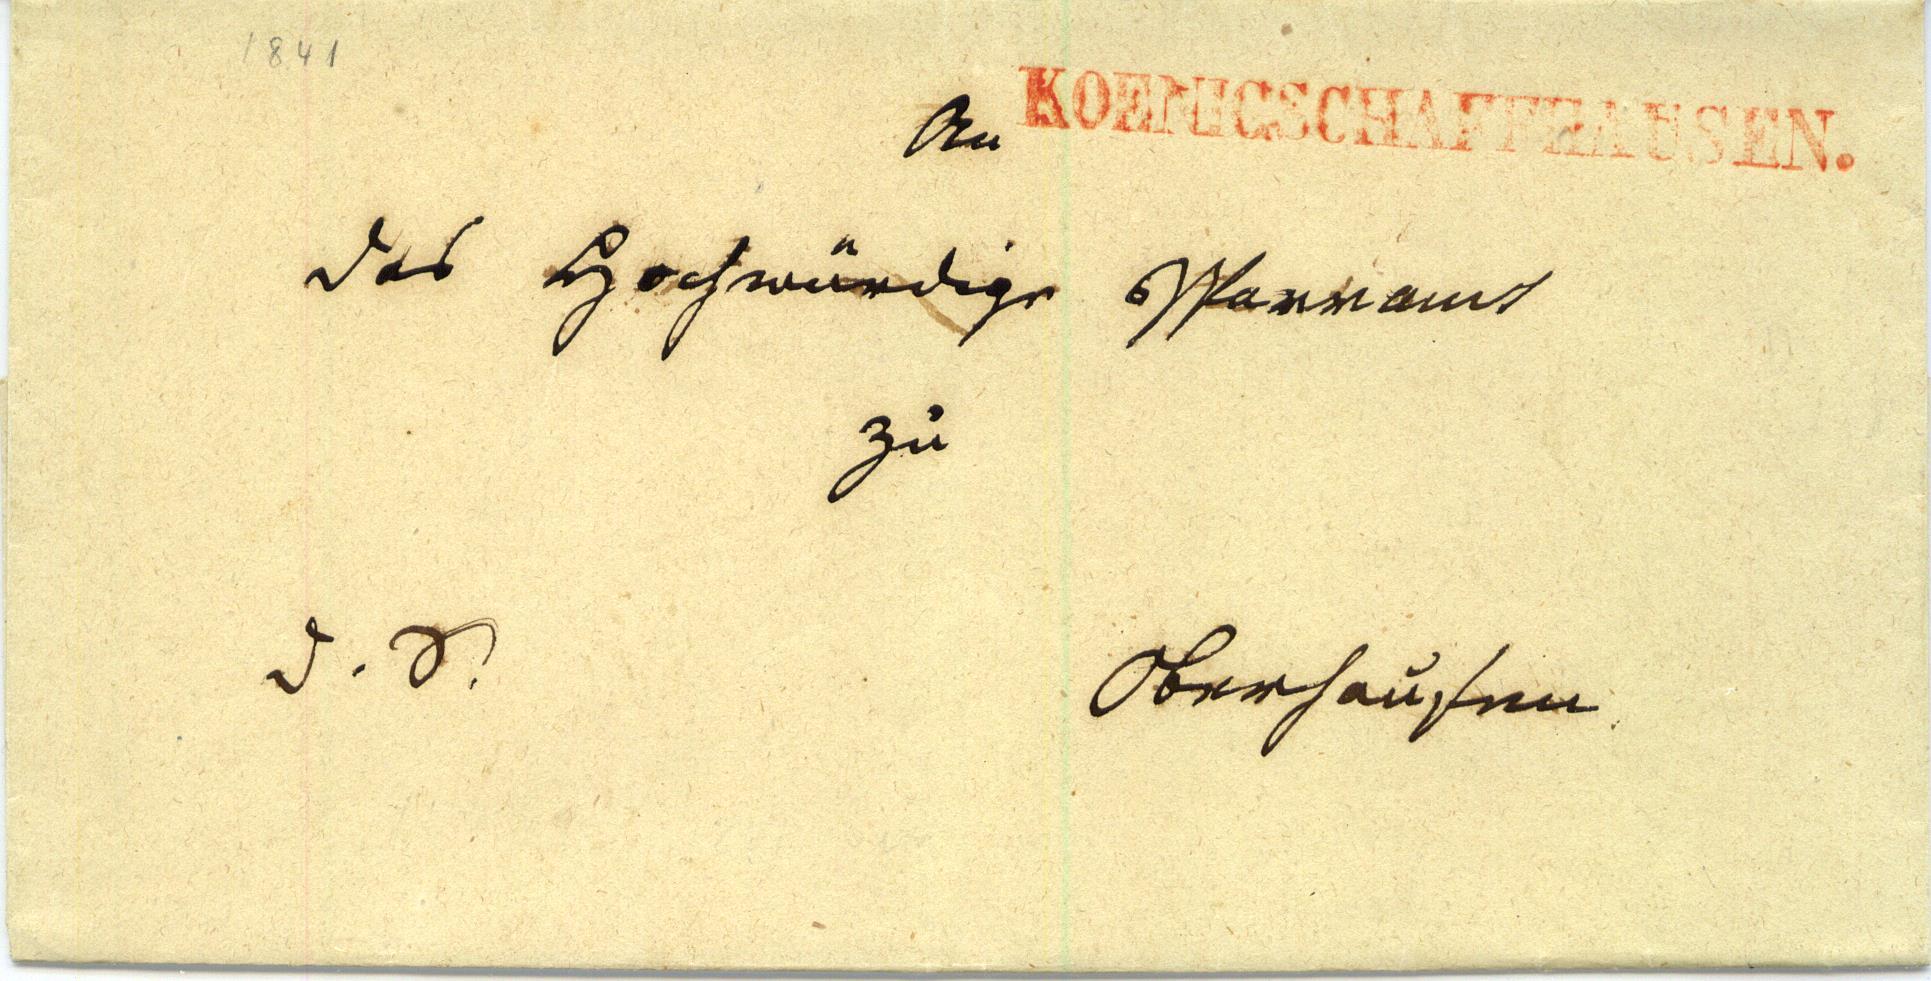 1841
KOENIGSCHAFFHAUSEN.
An
das Hochwürdige Pfarramt
zu
d. S.
Oberhausen